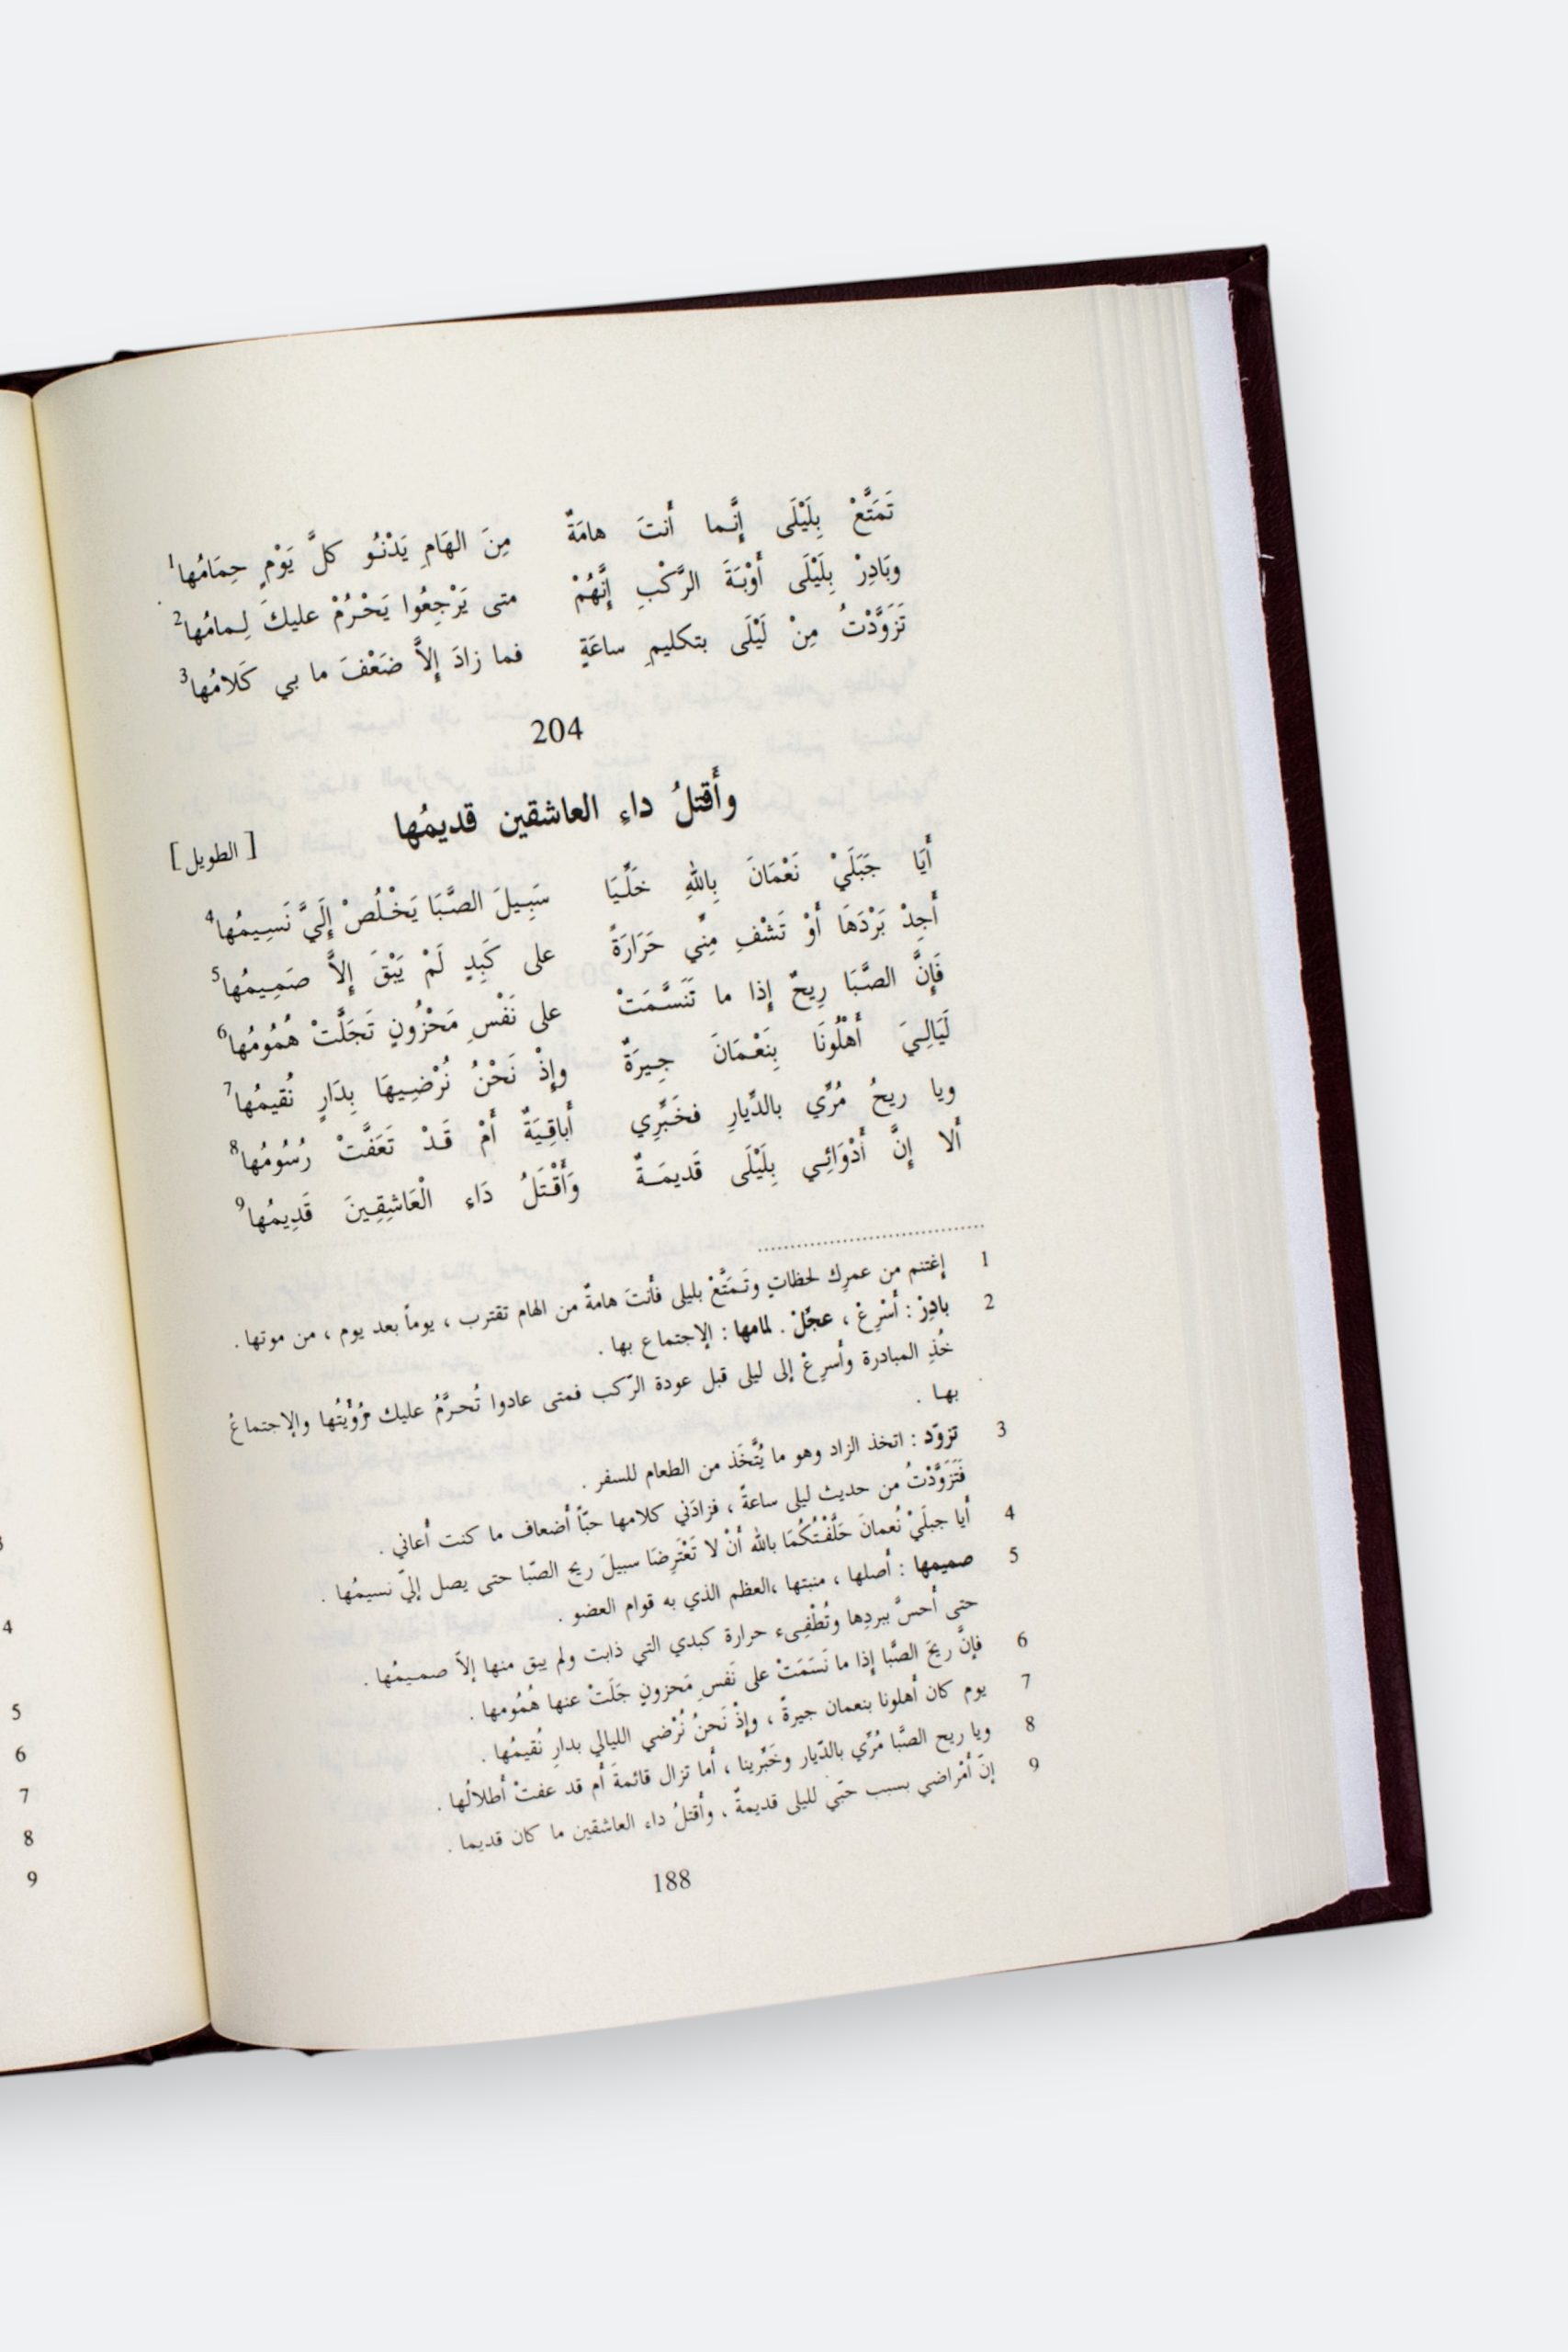 تَمَتَّعْ بِلَيْلَى إِنَّـما أَنتَ هامَةٌ مِنَ الهَامِ يَدْنُـو كلَّ يَوْمٍ حِمَامُها1
وبَادِرْ بِلَيْلَى أَوْبَـةَ الرَّكْبِ إِنَّهُمْ متى يَرْجِعُوا يَحْـرُمْ عليكَ لِـمامُها2
تَزَوَّدْتُ مِنْ لَيْلَى بتكليمِ ساعَةٍ فما زادَ إِلاَّ ضَعْفَ ما بي كَلامُها3
204
وأَقتلُ داءِ العاشقين قديمُها
[ الطويل ]
أَيَا جَبَلَيْ نَعْمَانَ بِاللهِ خَلِّيَا سَبِـيلَ الصَّبَا يَخْـلُصْ إِلَيَّ نَسِـيمُها4
أَجِدْ بَرْدَهَا أَوْ تَشْفِ مِنِّي حَرَارَةً على كَبِدٍ لَمْ يَبْقَ إِلاَّ صَمِـيمُها5
فَإِنَّ الصَّبَا رِيحٌ إِذا ما تَنَسَّمَتْ على نَفْسِ مَحْزُونٍ تَجَلَّتْ هُمُومُها6
لَيَالِـيَ أَهْلُونَا بِنَعْـمَانَ جِـيرَةٌ وإِذْ نَحْنُ نُرْضِـيهَا بِدَارٍ نُقيمُها7
ويا ريحُ مُرِّي بالدِّيارِ فخَبِّرِي أَباقِـيَةٌ أَمْ قَـدْ تَعَفَّتْ رُسُومُها8
أَلا إِنَّ أَدْوَائِـي بِلَيْلَى قَديمَـةٌ وَأَقْـتَلُ دَاءِ الْعَاشِقِـينَ قَدِيمُها9
1 إِغتنم من عمرِك لحظاتٍ وتَـمَتَّعْ بليلى فأَنتَ هامةٌ من الهام تقترب ، يوماً بعد يوم ، من موتها .
2 بادِرْ : أَسْرِعْ ، عجِّلْ . لمامها : الإجتماع بها .
خُذِ المبادرة وأَسرِعْ إلى ليلى قبل عودة الرّكب فمتى عادوا تُحـرَّمُ عليك رُؤْيتُها والإجتماعُ
بهـا .
3 تزوّد : اتخذ الزاد وهو ما يُتَّخَذ من الطعام للسفر .
فَتَزَوَّدْتُ من حديث ليلى ساعةً ، فزادَني كلامها حبّاً أَضعاف ما كنت أُعاني .
4 أَيا جبلَيْ نُعمانَ حَلَّفْـتُكُمَا بالله أَنْ لا تَعْتَرِضَا سبيلَ ريح الصّبا حتى يصل إليّ نسيمُها .
5 صميمها : أَصلها ، منبتها ،العظم الذي به قوام العضو .
حتى أَحسَّ ببردِها وتُطْفِـىء حرارة كبدي التي ذابت ولم يبق منها إلاّ صمـيمُها .
6 فإنَّ ريحَ الصَّبا إِذا ما نَسَمَتْ على نَفسِ مَحزونٍ جَلَتْ عنها هُمُومها .
7 يوم كان أَهلونا بنعمان جيرةً ، وإِذْ نَحنُ نُرْضي الليالي بدارِ نُقيمُها .
8 ويا ريح الصَّبا مُرِّي بالدّيار وخَبِّرينا ، أَما تزال قائمةَ أَم قد عفتْ أَطلالُها .
9 إنّ أَمْراضي بسبب حبّي لليلى قديمةٌ ، وأَقتلُ داء العاشقين ما كان قديما .
188
4
5
6
7
8
9